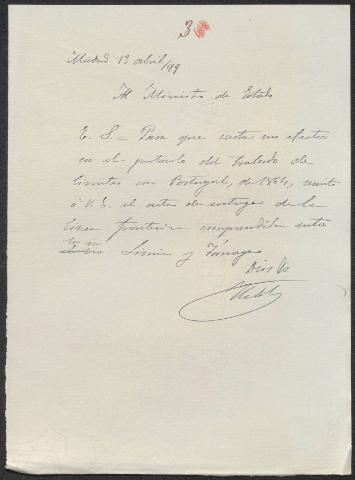 3
Madrid 13 abril/99
Al Ministro de Estado
E. S. = Para que surta sus efectos
en el protocolo del tratado de
límites con Portugal, de 1864, remito
á V. E. el acta de entrega de la
línea fronteriza comprendida entre
los ríos
Limia y
Dios &